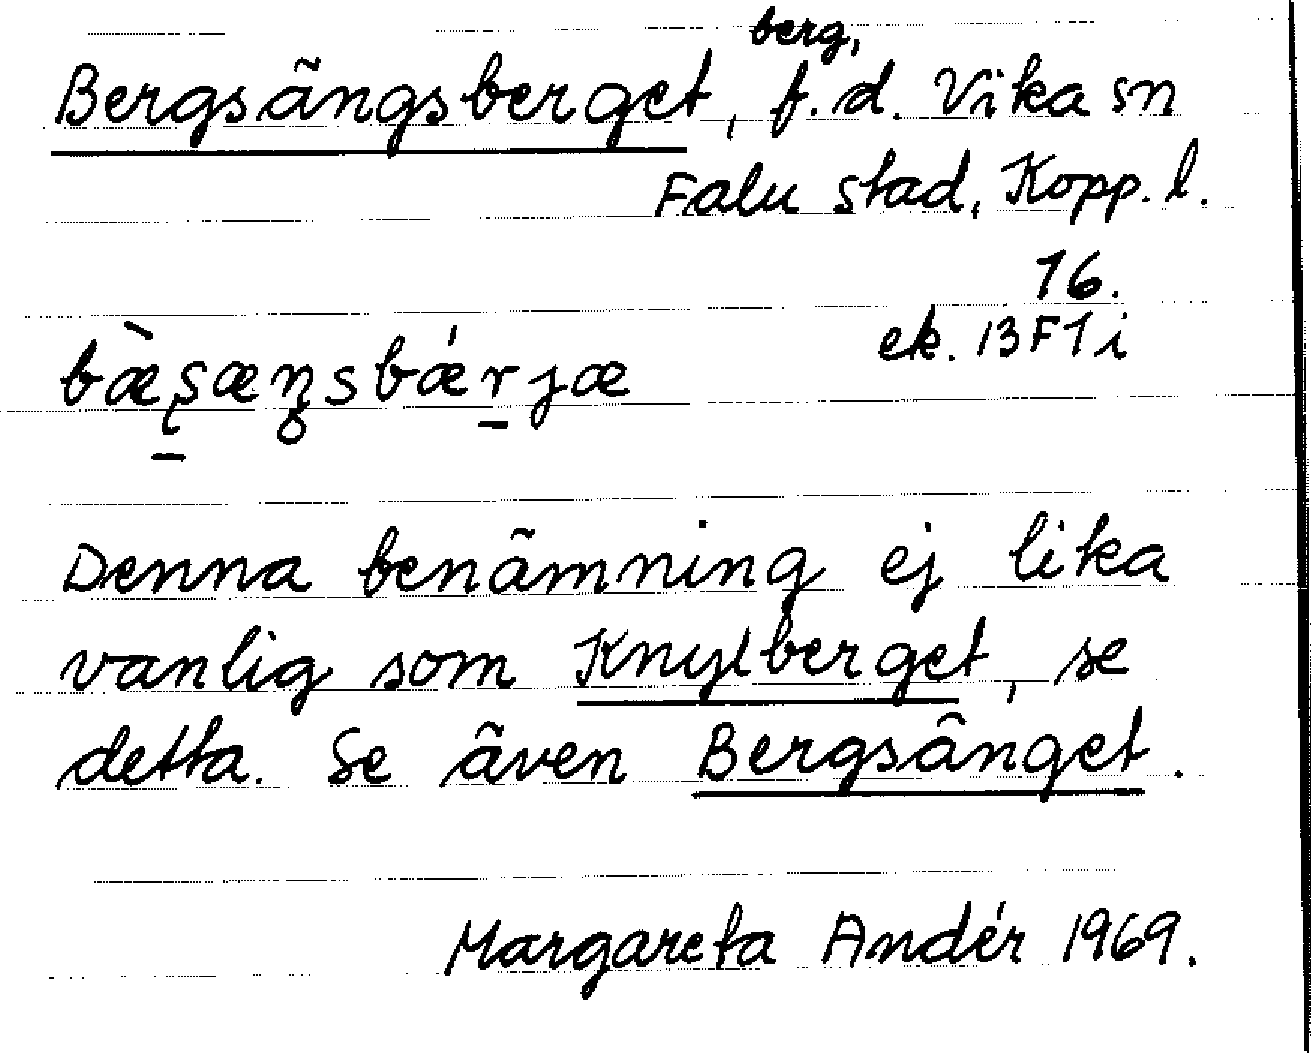 Bergsängsberget, berg, f.d. Vika sn
Falu stad, Kopp. l.
16.
ek. 13F1i
bæ̀ʂæŋsbǽrjæ
Denna benämning ej lika
vanlig som Knylberget, se
detta. Se även Bergsänget.
Margareta Andér 1969.